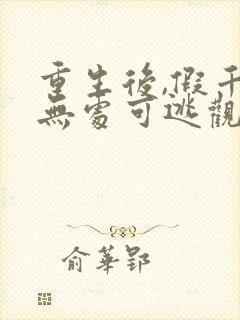 重生後,假千
無處可逃觀
俞華郢